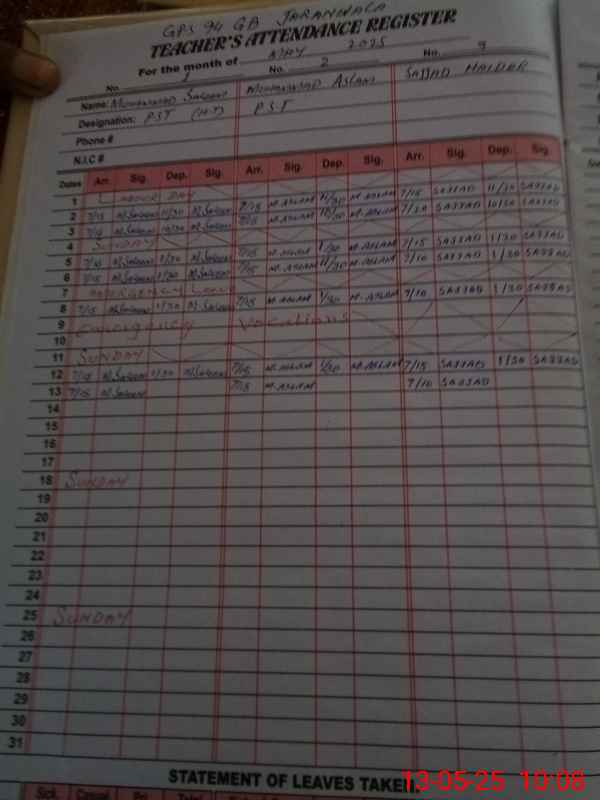 GPS 94 GB JARANWALA
TEACHER'S ATTENDANCE REGISTER
For the month of MAY 2025
No. 1 No. 2 No. 3
Name: MUHAMMAD Saleem MUHAMMAD ASLAM SAJJAD HAIDER
Designation: PST (H.T) PST
Phone #
N.I.C #
Dates Arr. Sig. Dep. Sig. Arr. Sig. Dep. Sig. Arr. Sig. Dep. Sig.
1 LABOUR DAY
2 7/15 M.Saleem 11/30 M.Saleem 7/15 M.ASLAM 11/30 M.ASLAM 7/15 SAJJAD 11/30 SAJJAD
3 7/15 M.Saleem 10/30 M.Saleem 7/15 M.ASLAM 10/30 M.ASLAM 7/20 SAJJAD 10/30 SAJJAD
4 SUNDAY
5 7/15 M.Saleem 1/30 M.Saleem 7/15 M.ASLAM 1/30 M.ASLAM 7/15 SAJJAD 1/30 SAJJAD
6 7/15 M.Saleem 1/30 M.Saleem 7/15 M.ASLAM 1/30 M.ASLAM 7/10 SAJJAD 1/30 SAJJAD
7 EMERGENCY
8 7/15 M.Saleem 1/30 M.Saleem 7/15 M.ASLAM 1/30 M.ASLAM 7/10 SAJJAD 1/30 SAJJAD
9 Emergency Vocations
10
11 SUNDAY
12 7/15 M.Saleem 1/30 M.Saleem 7/15 M.ASLAM 1/30 M.ASLAM 7/15 SAJJAD 1/30 SAJJAD
13 7/15 M.Saleem 7/15 M.ASLAM 7/10 SAJJAD
14
15
16
17
18 SUNDAY
19
20
21
22
23
24
25 SUNDAY
26
27
28
29
30
31
STATEMENT OF LEAVES TAKEN.
13-05-25 10:08
Sck. Casual Pri. Total